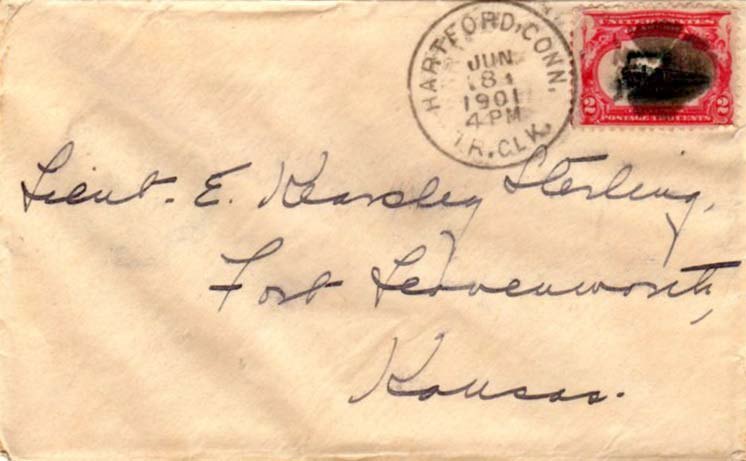 HARTFORD, CONN.
JUN
8
1901
4 PM
TR. CLK.
UNITED STATES
2 2
POSTAGE TWO CENTS
Lieut. E. Kearsley Sterling,
Fort Leavenworth,
Kansas.